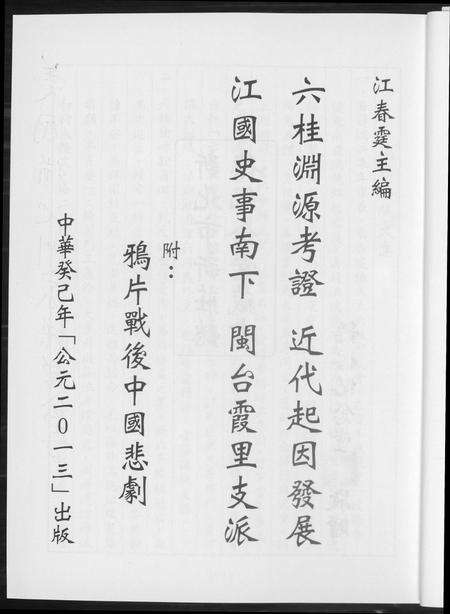 江春霆主編
六桂淵源考證 近代起因發展
江國史事南下 閩台霞里支派
附：
鴉片戰後中國悲劇
中華癸己年「公元二0一三」出版